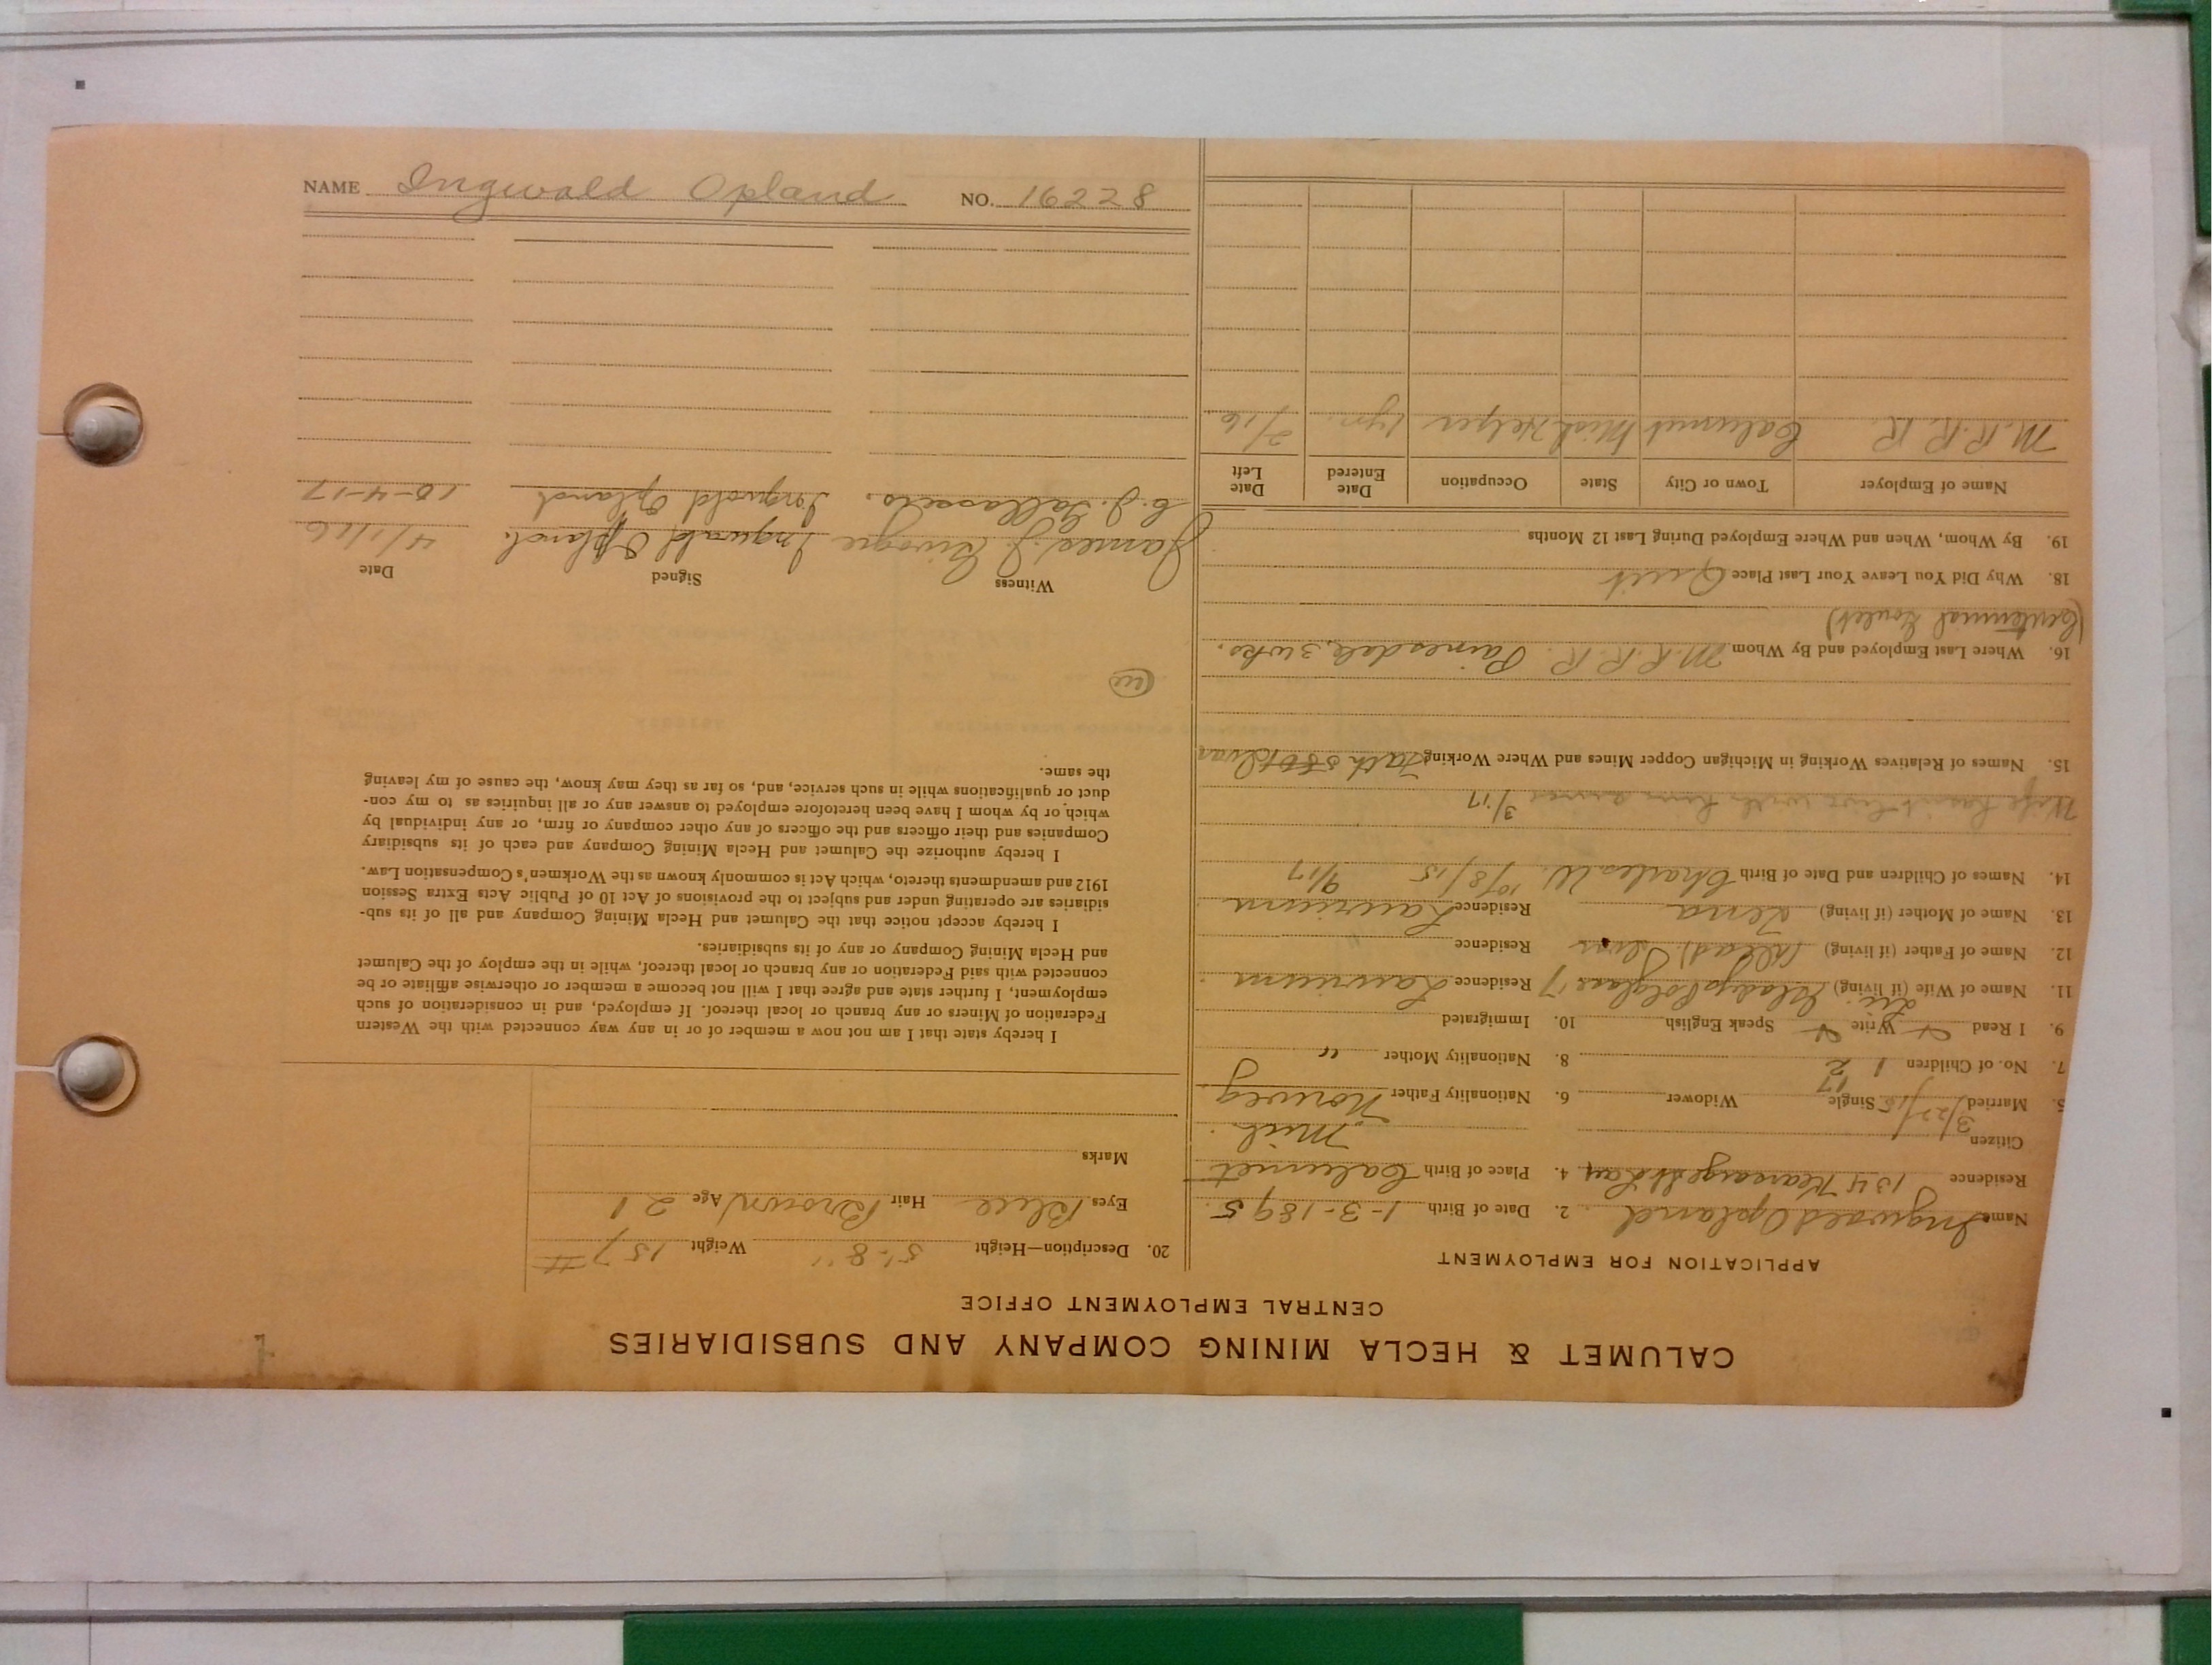 NAME Ingwald Opland NO. 16228
CALUMET & HECLA MINING COMPANY AND SUBSIDIARIES
CENTRAL EMPLOYMENT OFFICE
APPLICATION FOR EMPLOYMENT
Name Ingwald Opland 2. Date of Birth 1-3-1895
Residence 134 Kearsarge St Lau 4. Place of Birth Calumet
Citizen Mich.
5. Married 3/27/15 Single 17 Widower 6. Nationality Father Norweg
7. No. of Children 1 2 8. Nationality Mother "
9. I Read Write Speak English 10. Immigrated
11. Name of Wife (if living) Gladys Residence Laurium
12. Name of Father (if living) (dead) Residence "
13. Name of Mother (if living) Lena Residence Laurium
14. Names of Children and Date of Birth Charles W. 10/8/15 9/17
Wife hasn't live with him since 3/17
15. Names of Relatives Working in Michigan Copper Mines and Where Working
16. Where Last Employed and By Whom M.R.R.R. Painesdale, 3 wks.
(Centennial
18. Why Did You Leave Your Last Place Quit
19. By Whom, When and Where Employed During Last 12 Months
Name of Employer Town or City State Occupation Date Entered Date Left
M.R.R.R. Calumet Mich Helper 1 yr. 2/16
20. Description—Height 5'-8" Weight 157 #
Eyes Blue Hair Brown Age 21
Marks
I hereby state that I am not now a member of or in any way connected with the Western
Federation of Miners or any branch or local thereof. If employed, and in consideration of such
employment, I further state and agree that I will not become a member or otherwise affiliate or be
connected with said Federation or any branch or local thereof, while in the employ of the Calumet
and Hecla Mining Company or any of its subsidiaries.
I hereby accept notice that the Calumet and Hecla Mining Company and all of its sub-
sidiaries are operating under and subject to the provisions of Act 10 of Public Acts Extra Session
1912 and amendments thereto, which Act is commonly known as the Workmen's Compensation Law.
I hereby authorize the Calumet and Hecla Mining Company and each of its subsidiary
Companies and their officers and the officers of any other company or firm, or any individual by
which, or by whom I have been heretofore employed to answer any or all inquiries as to my con-
duct or qualifications while in such service, and, so far as they may know, the cause of my leaving
the same.
Witness Signed Date
James J. Ingwald Opland. 4/1/16
C. J. Ingwald Opland 10-4-17